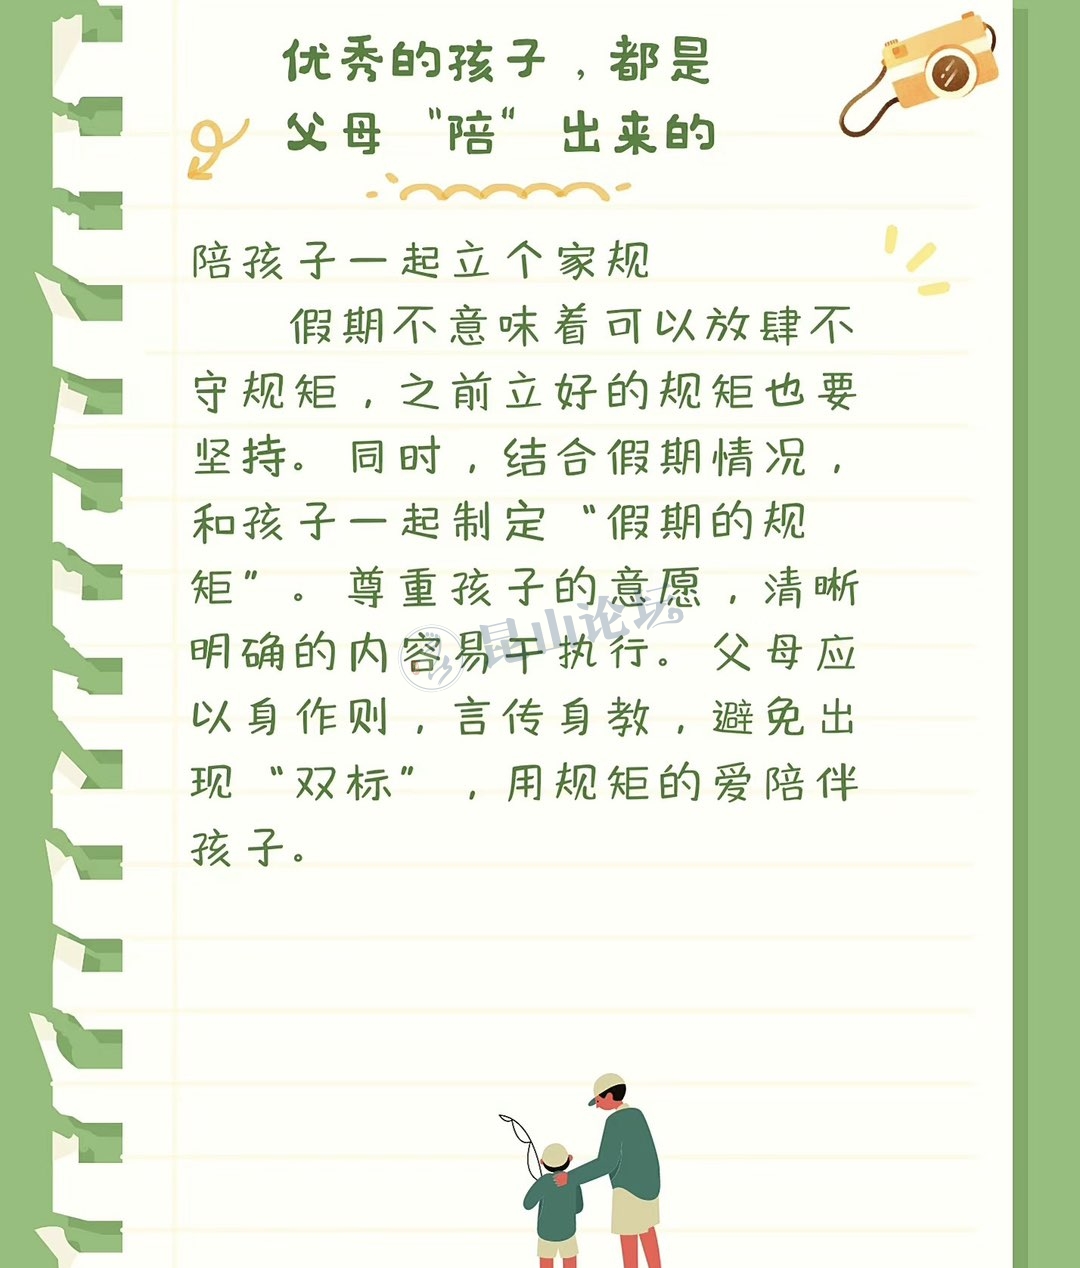 优秀的孩子，都是
父母“陪”出来的
陪孩子一起立个家规
假期不意味着可以放肆不
守规矩，之前立好的规矩也要
坚持。同时，结合假期情况，
和孩子一起制定“假期的规
矩”。尊重孩子的意愿，清晰
明确的内容易于执行。父母应
以身作则，言传身教，避免出
现“双标”，用规矩的爱陪伴
孩子。
昆山论坛